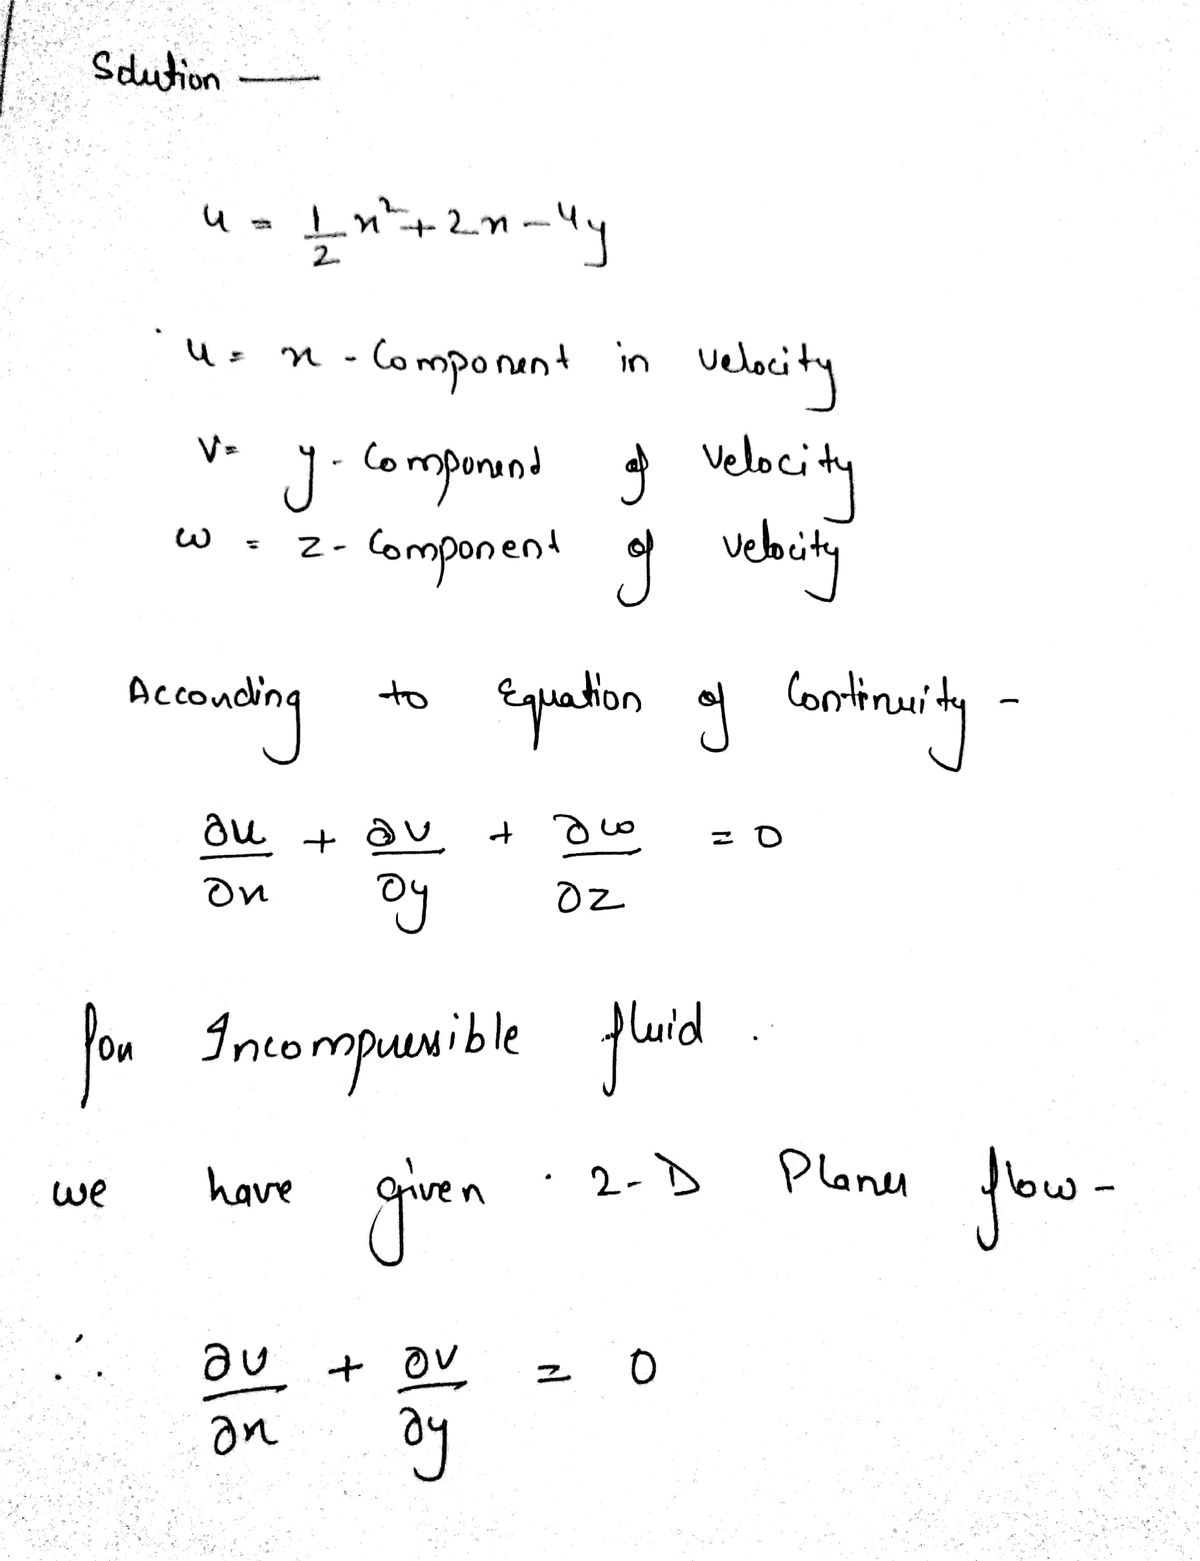 Solution —
u = 1/2 x² + 2x - 4y
u = x - Component in velocity
V = y - Component of velocity
w = z - Component of velocity
According to Equation of Continuity -
∂u/∂x + ∂v/∂y + ∂w/∂z = 0
for Incompressible fluid.
we have given 2-D Planer flow -
∴ ∂u/∂x + ∂v/∂y = 0